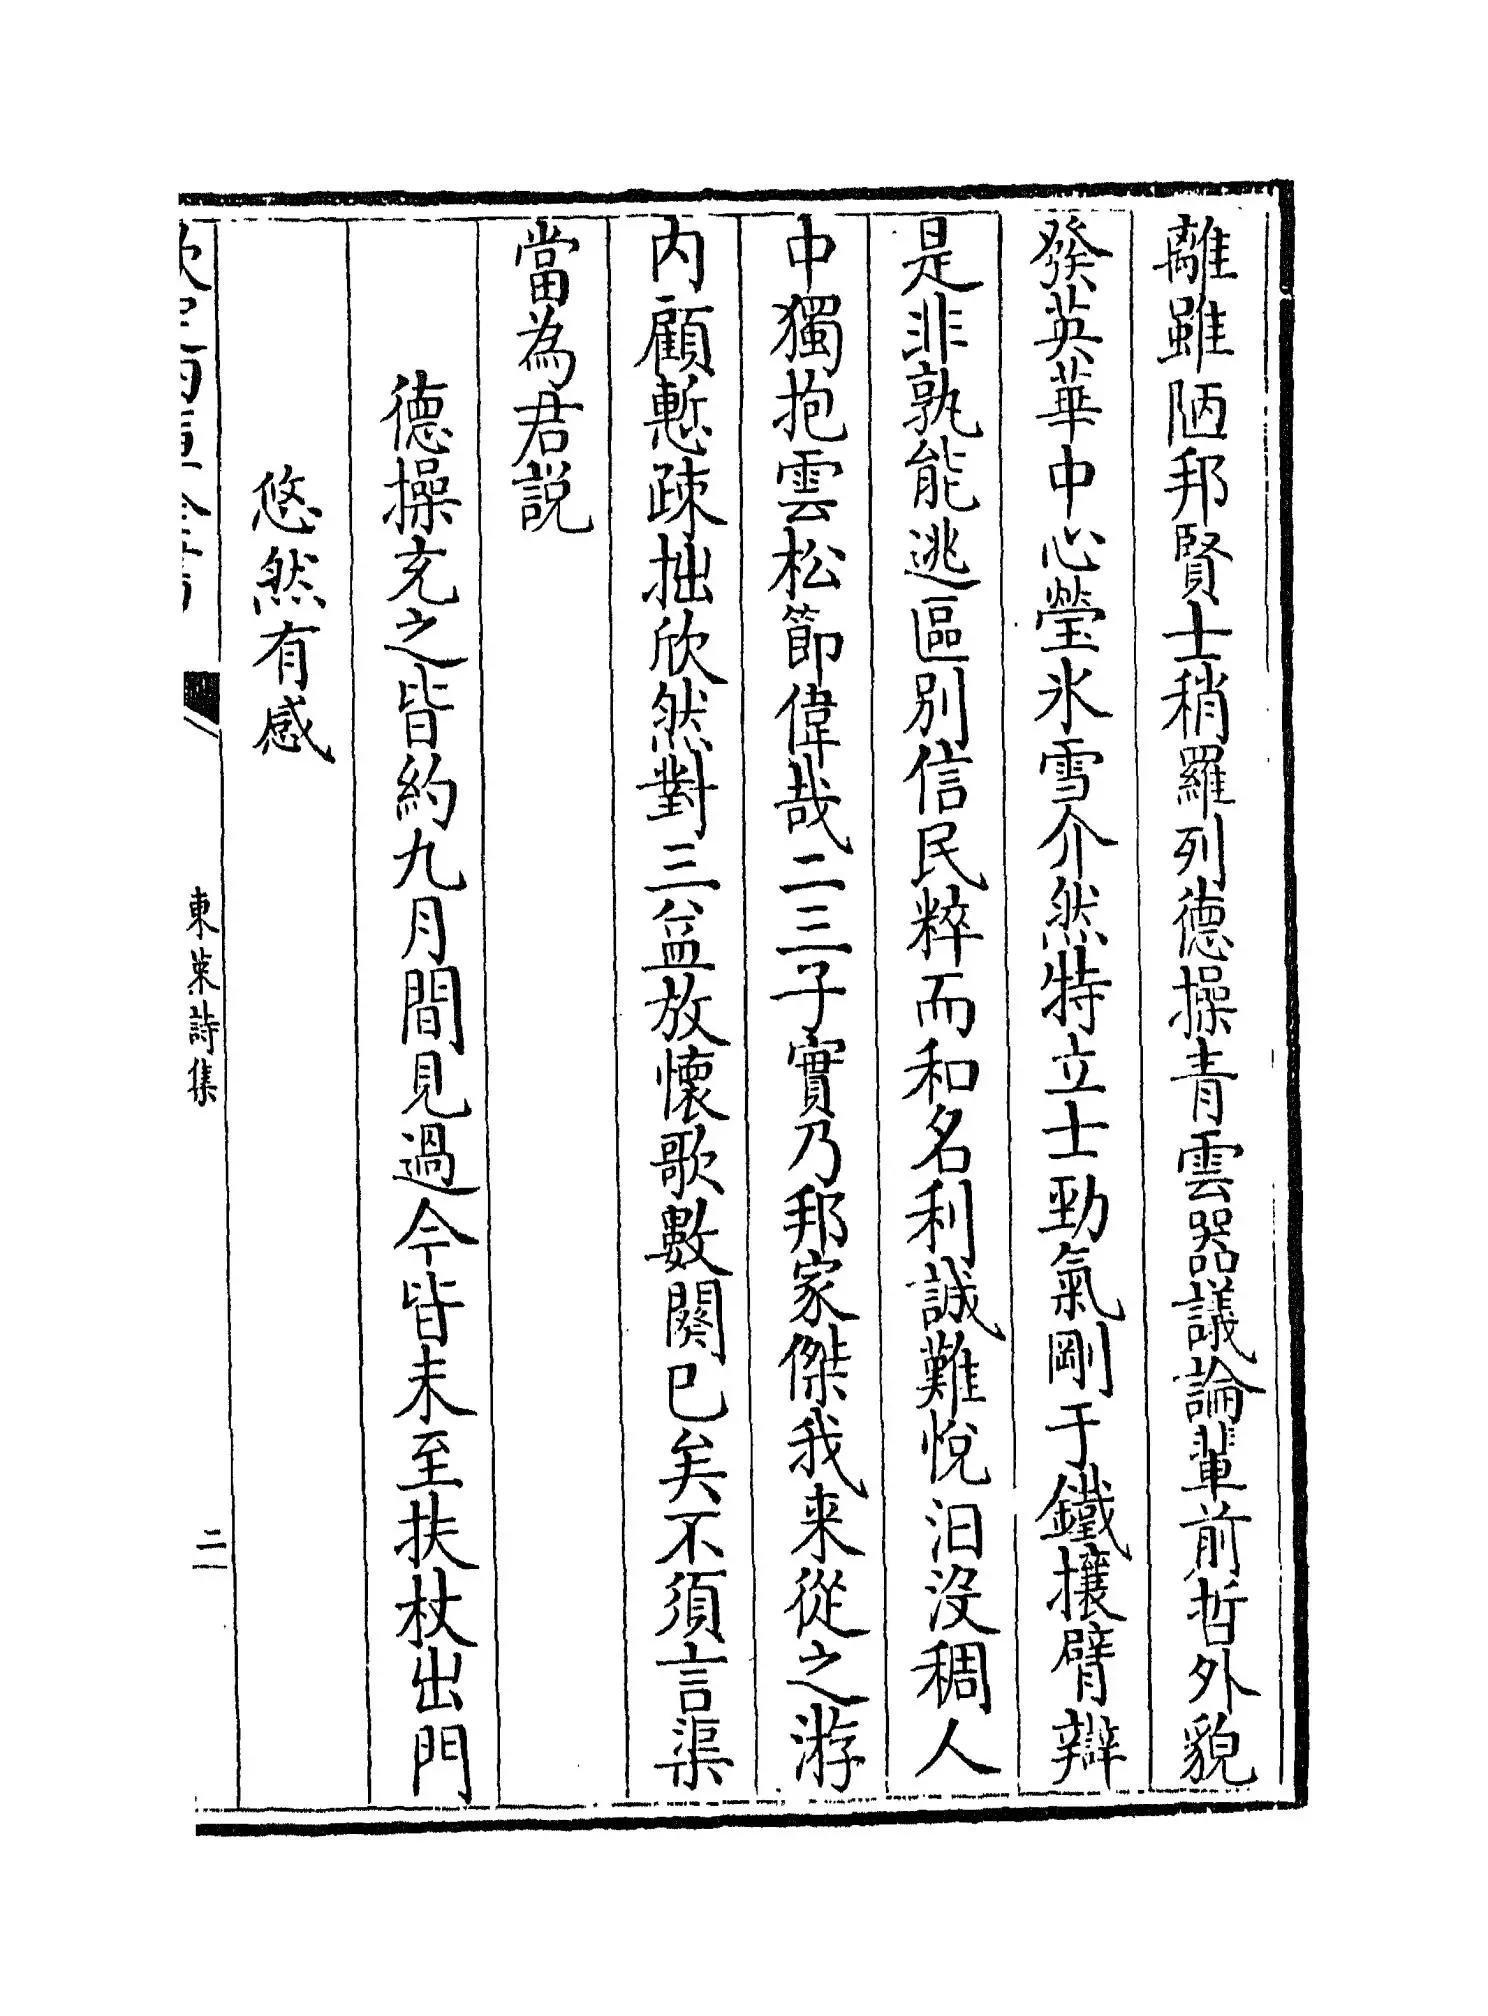 離雖陋邦賢士稍羅列德操青雲器議論輩前哲外貌
發英華中心瑩氷雪介然特立士勁氣剛于鐵攘臂辯
是非孰能逃區别信民粹而和名利誠難悅汩没稠人
中獨抱雲松節偉哉二三子實乃邦家傑我来從之游
内顧慙疎拙欣然對三益放懷歌數闋已矣不須言渠
當為君説
德操充之皆約九月間見過今皆未至扶杖出門
悠然有感
欽定四庫全書
東萊詩集
二